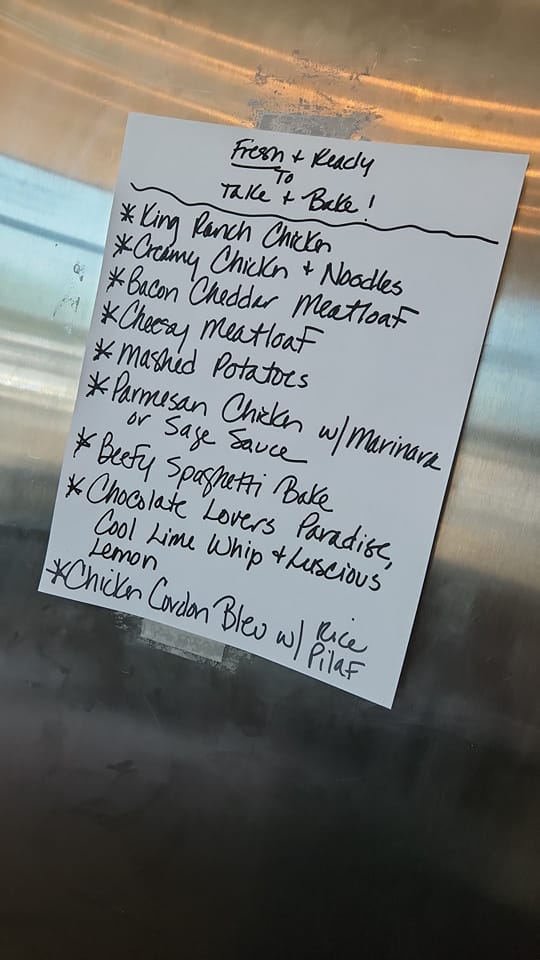 Fresh + Ready
To
Take + Bake!
* King Ranch Chicken
* Creamy Chickn + Noodles
* Bacon Cheddar Meatloaf
* Cheesy Meatloaf
* Mashed Potatoes
* Parmesan Chickn w/ Marinara
or Sage Sauce
* Beefy Spaghetti Bake
* Chocolate Lovers Paradise,
Cool Lime Whip + Luscious
Lemon
* Chicken Cordon Bleu w/ Rice
Pilaf